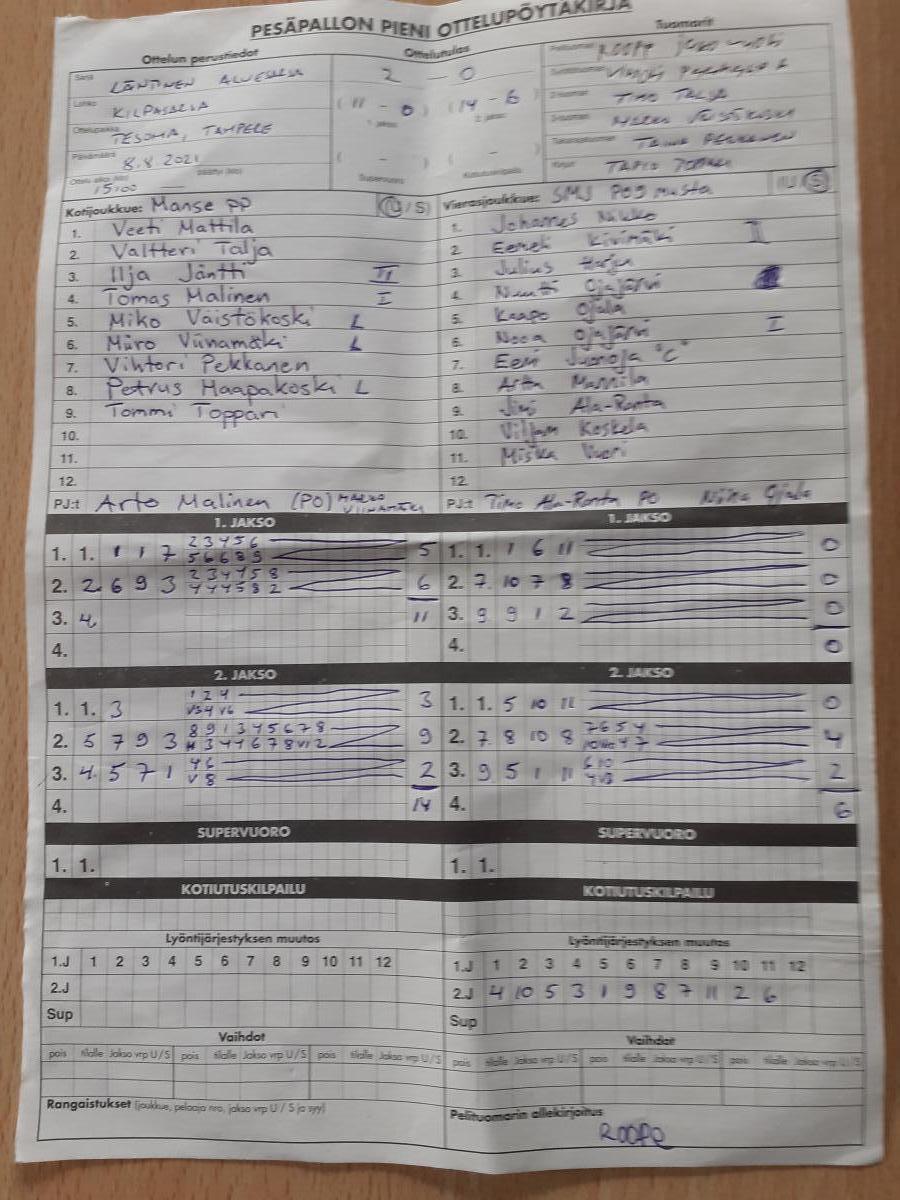 PESÄPALLON PIENI OTTELUPÖYTÄKIRJA
Ottelun perustiedot
Ottelutulos
Tuomarit
Sarja LÄNTINEN ALUESARJA
Lohko KILPASARJA
Ottelupaikka TESOMA, TAMPERE
Päivämäärä 8.8.2021
Ottelu alkoi (klo) 15:00
2 - 0
( 11 - 0 ) ( 14 - 6 )
1. jakso 2. jakso
( - ) ( - )
Supervuoro Kotiutuskilpailu
Pelituomari ROOPE
TIMO TALJA
TAPIO
Kotijoukkue: Manse PP (U / S)
1. Veeti Mattila
2. Valtteri Talja
3. Ilja Jäntti II
4. Tomas Malinen I
5. Miko Väistökoski L
6. Miiro Viinamäki L
7. Vihtori Pekkanen
8. Petrus Haapakoski L
9. Tommi Toppari
10.
11.
12.
PJ:t Arto Malinen (PO) MARKO VIINAMÄKI
Vierasjoukkue: SMJ POJ musta (U / S)
1. Johannes Nikko
2. Eemeli Kivimäki II
3. Julius Harju
4. Ojajärvi
5. Kaapo Ojala
6. Nooa Ojajärvi I
7. Eesi Juonoja "C"
8. Arttu Mannila
9. Jimi Ala-Ranta
10. Viljam Koskela
11. Miska Vuori
12.
PJ:t Timo Ala-Ranta PO Niina Ojala
1. JAKSO
1. 1. 1 1 7 2 3 4 5 6 5
5 6 6 8 9
2. 2 6 9 3 2 3 4 7 5 8 6
4 4 4 5 8 2
3. 4 11
4.
1. JAKSO
1. 1. 1 6 11 0
2. 7 10 7 8 0
3. 9 9 1 2 0
4. 0
2. JAKSO
1. 1. 3 1 2 4 3
V3 4 V6
2. 5 7 9 3 8 9 1 3 4 5 6 7 8 9
3 4 4 6 7 8 V1 2
3. 4 5 7 1 4 6 2
V 8
4. 14
2. JAKSO
1. 1. 5 10 11 0
2. 7 8 10 8 7 6 5 4 4
4 7
3. 9 5 1 11 6 10 2
4 V3
4. 6
SUPERVUORO
1. 1.
SUPERVUORO
1. 1.
KOTIUTUSKILPAILU
KOTIUTUSKILPAILU
Lyöntijärjestyksen muutos
1.J 1 2 3 4 5 6 7 8 9 10 11 12
2.J
Sup
Lyöntijärjestyksen muutos
1.J 1 2 3 4 5 6 7 8 9 10 11 12
2.J 4 10 5 3 1 9 8 7 11 2 6
Sup
Vaihdot
pois tilalle Jakso vrp U / S pois tilalle Jakso vrp U / S pois tilalle Jakso vrp U / S
Vaihdot
pois tilalle Jakso vrp U / S pois tilalle Jakso vrp U / S pois tilalle Jakso vrp U / S
Rangaistukset (joukkue, pelaaja nro, jakso vrp U / S ja syy)
Pelituomarin allekirjoitus
ROOPE